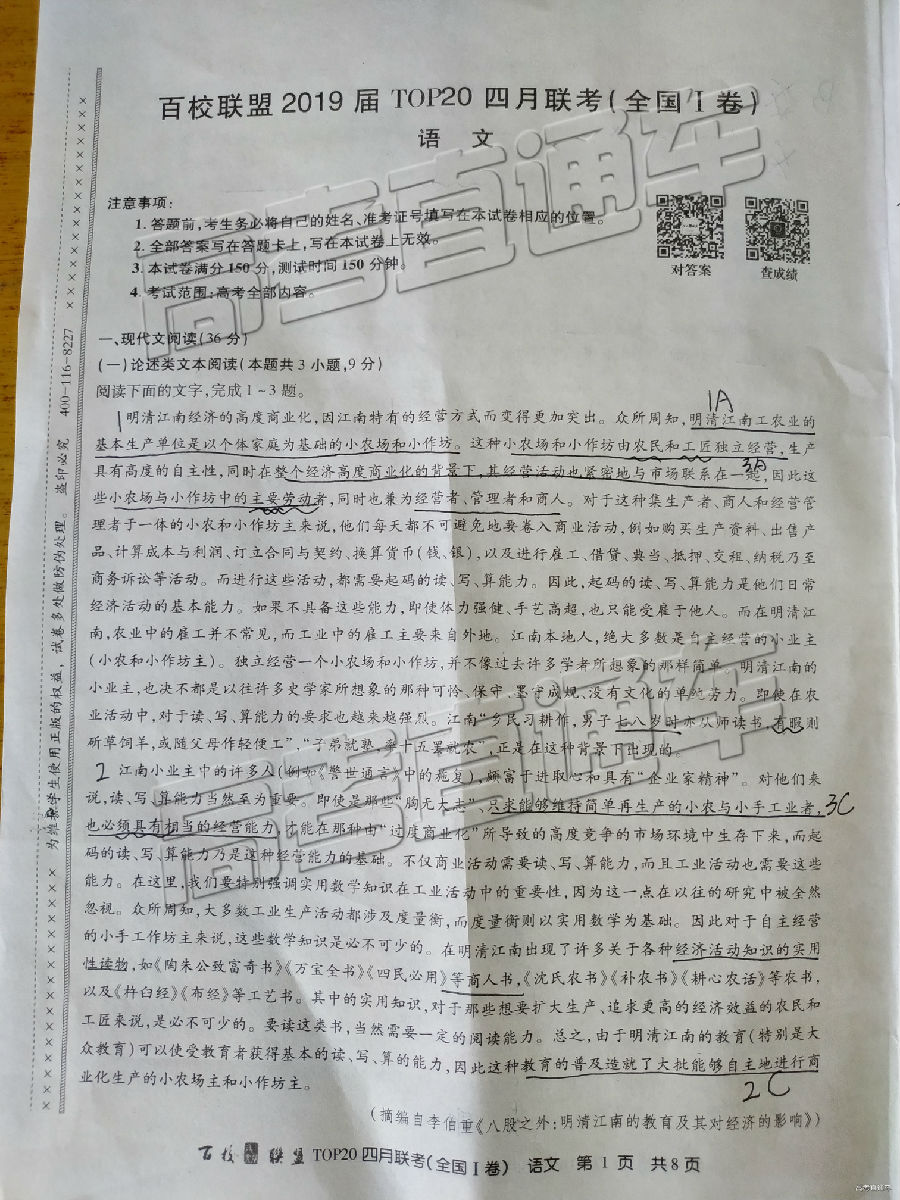 百校联盟2019届TOP20四月联考(全国Ⅰ卷)
语 文
注意事项:
1. 答题前,考生务必将自己的姓名、准考证号填写在本试卷相应的位置。
2. 全部答案写在答题卡上,写在本试卷上无效。
3. 本试卷满分150分,测试时间150分钟。
4. 考试范围:高考全部内容。
对答案
查成绩
一、现代文阅读(36分)
(一)论述类文本阅读(本题共3小题,9分)
阅读下面的文字,完成1~3题。
1A
1 明清江南经济的高度商业化,因江南特有的经营方式而变得更加突出。众所周知,明清江南工农业的
基本生产单位是以个体家庭为基础的小农场和小作坊。这种小农场和小作坊由农民和工匠独立经营,生产
具有高度的自主性,同时在整个经济高度商业化的背景下,其经营活动也紧密地与市场联系在一起,因此这
3A
些小农场与小作坊中的主要劳动者,同时也兼为经营者、管理者和商人。对于这种集生产者、商人和经营管
理者于一体的小农和小作坊主来说,他们每天都不可避免地要卷入商业活动,例如购买生产资料、出售产
品、计算成本与利润、订立合同与契约、换算货币(钱、银),以及进行雇工、借贷、典当、抵押、交租、纳税乃至
商务诉讼等活动。而进行这些活动,都需要起码的读、写、算能力。因此,起码的读、写、算能力是他们日常
经济活动的基本能力。如果不具备这些能力,即使体力强健、手艺高超,也只能受雇于他人。而在明清江
南,农业中的雇工并不常见,而工业中的雇工主要来自外地。江南本地人,绝大多数是自主经营的小业主
(小农和小作坊主)。独立经营一个小农场和小作坊,并不像过去许多学者所想象的那样简单。明清江南的
小业主,也决不都是以往许多史学家所想象的那种可怜、保守、墨守成规、没有文化的单纯劳力。即使在农
业活动中,对于读、写、算能力的要求也越来越强烈。江南“乡民习耕作,男子七八岁时亦从师读书,有暇则
斫草饲羊,或随父母作轻便工”,“子弟就塾,率十五罢就农”,正是在这种背景下出现的。
2 江南小业主中的许多人(例如《警世通言》中的施复),颇富于进取心和具有“企业家精神”。对他们来
说,读、写、算能力当然至为重要。即使是那些“胸无大志”、只求能够维持简单再生产的小农与小手工业者,
3C
也必须具有相当的经营能力,才能在那种由“过度商业化”所导致的高度竞争的市场环境中生存下来,而起
码的读、写、算能力乃是这种经营能力的基础。不仅商业活动需要读、写、算能力,而且工业活动也需要这些
能力。在这里,我们要特别强调实用数学知识在工业活动中的重要性,因为这一点在以往的研究中被全然
忽视。众所周知,大多数工业生产活动都涉及度量衡,而度量衡则以实用数学为基础。因此对于自主经营
的小手工作坊主来说,这些数学知识是必不可少的。在明清江南出现了许多关于各种经济活动知识的实用
性读物,如《陶朱公致富奇书》《万宝全书》《四民必用》等商人书,《沈氏农书》《补农书》《耕心农话》等农书,
以及《杵臼经》《布经》等工艺书。其中的实用知识,对于那些想要扩大生产、追求更高的经济效益的农民和
工匠来说,是必不可少的。要读这类书,当然需要一定的阅读能力。总之,由于明清江南的教育(特别是大
众教育)可以使受教育者获得基本的读、写、算的能力,因此这种教育的普及造就了大批能够自主地进行商
业化生产的小农场主和小作坊主。
2C
(摘编自李伯重《八股之外:明清江南的教育及其对经济的影响》)
百校联盟 TOP20四月联考(全国Ⅰ卷) 语文 第1页 共8页
为维护学生使用正版的权益,试卷多处做防伪处理。 盗印必究 400-116-8227
高考直通车
高考直通车